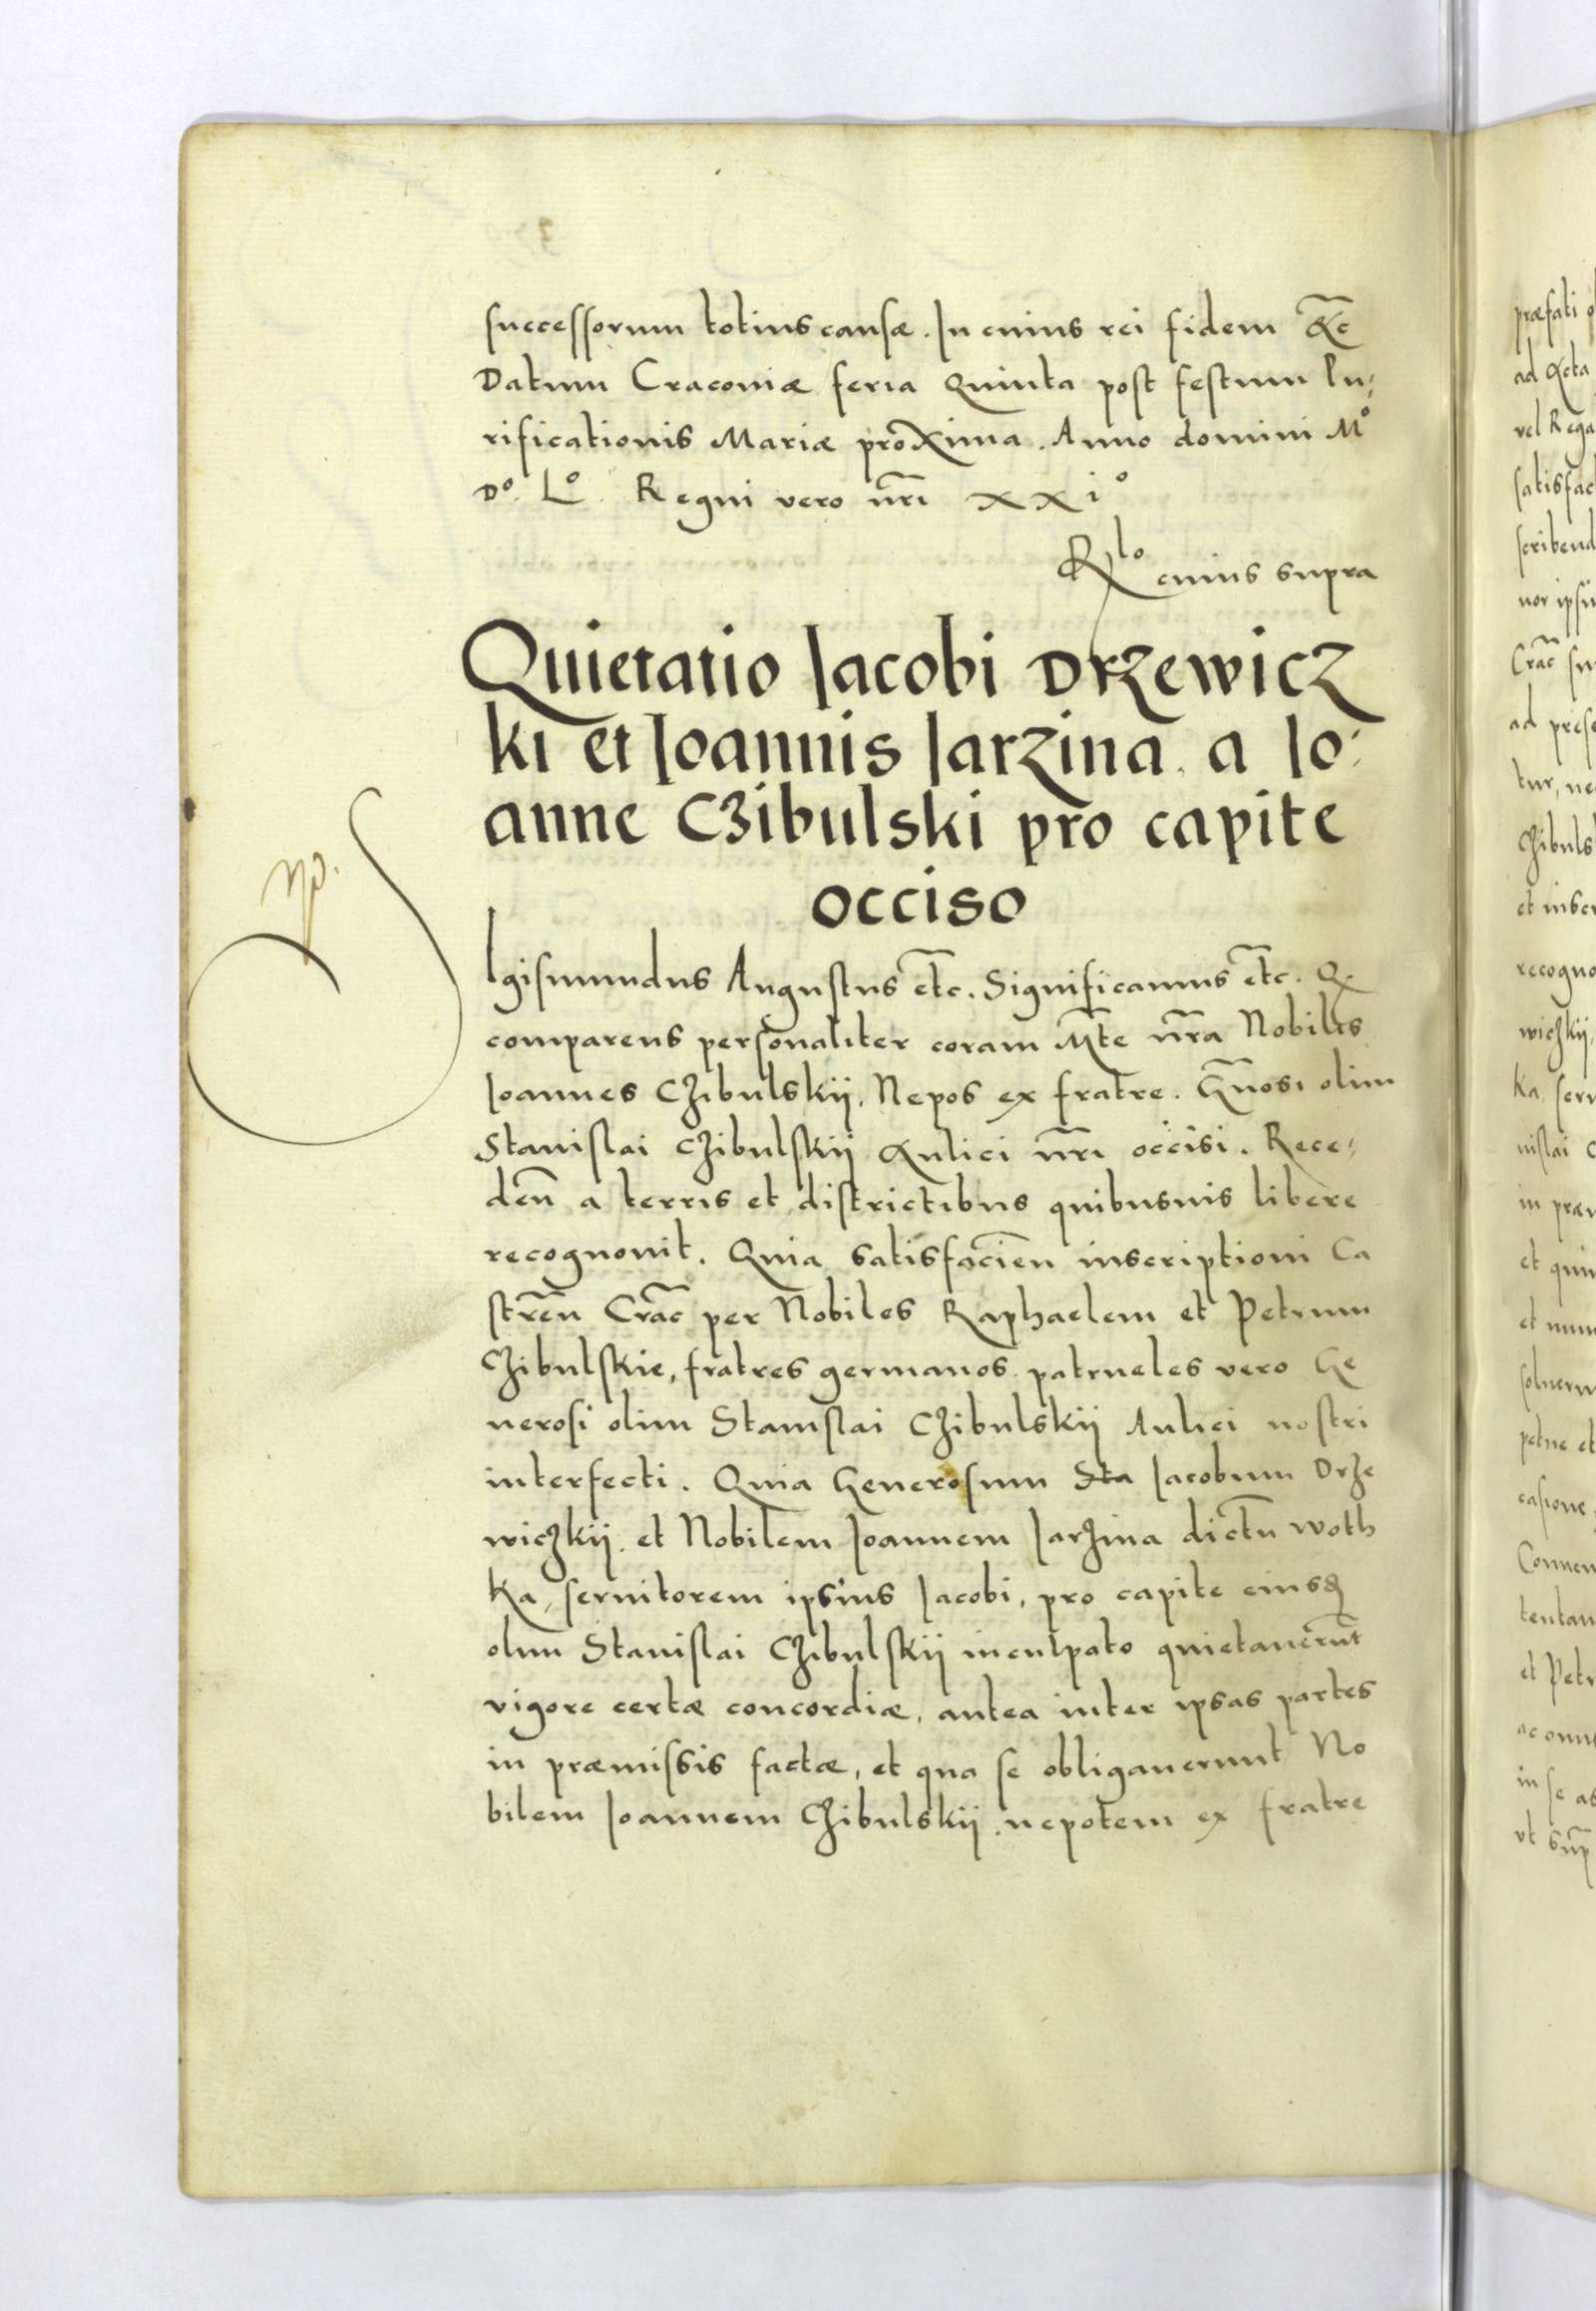 successorum totius causæ. In cuius rei fidem &c̄
Datum Cracoviæ feria Quinta post festum Pu⸗
rificationis Mariæ proxima. Anno domini M°
D°. L°. Regni vero nr̄i xxi°
Rlo cuius supra
Quietatio Jacobi Drzewicz
ki et Joannis Jarzina. a Jo⸗
anne Czibulski pro capite
occiso
Sigismundus Augustus etc̄. Significamus etc̄. Q
comparens personaliter coram Mt̄e nr̄a Nobilis
Joannes Czibulskij, Nepos ex fratre. Gn̄osi olim
Stanislai Czibulskij Aulici nr̄i occisi. Rece⸗
den̄ a terris et districtibus quibusuis libere
recognouit. Quia satisfacien̄ inscriptioni Ca
stren̄ Crac̄ per Nobiles Raphaelem et Petrum
Czibulskie, fratres germanos patrueles vero Ge
nerosi olim Stanislai Czibulskij Aulici nostri
interfecti. Quia Generosum Sta Jacobum Drze
wiczkij. et Nobilem Joannem Jarzina dictū woth
ka, seruitorem ipsius Jacobi, pro capite eiusdȩ
olim Stanislai Czibulskij inculpato quietauerūt
vigore certæ concordiæ, antea inter ipsas partes
in præmissis factæ, et qua se obligauerunt No
bilem Joannem Czibulskij nepotem ex fratre
præfati
ad Acta
vel Rega
satisfac
scribend
Crac̄
ad prese
tur, ne
Czibuls
recogno
wiczkij,
ka, seru
nislai C
et Petr
in se as